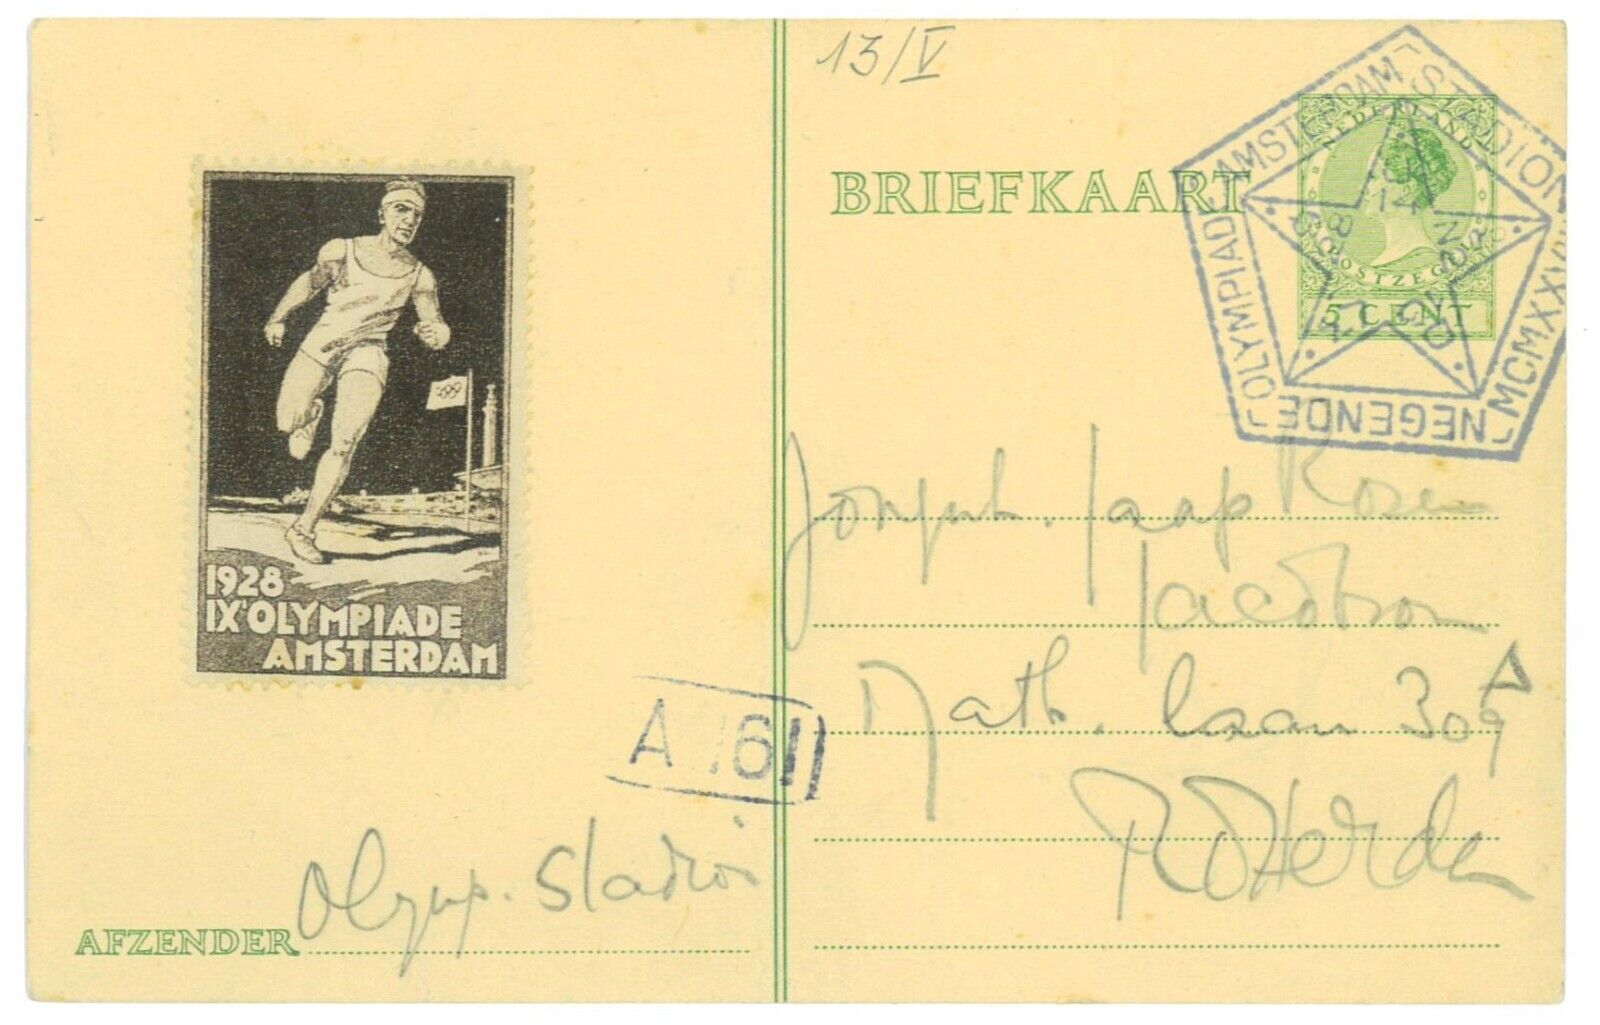 13/V
BRIEFKAART
NEDERLAND
POSTZEGEL
5 CENT
NEGENDE
OLYMPIADE
AMSTERDAM
STADION
1928
IX OLYMPIADE
AMSTERDAM
A 161
Jaap Rosen
Jacobson
Math. laan 309 A
Rotterdam
Olymp. Stadion
AFZENDER